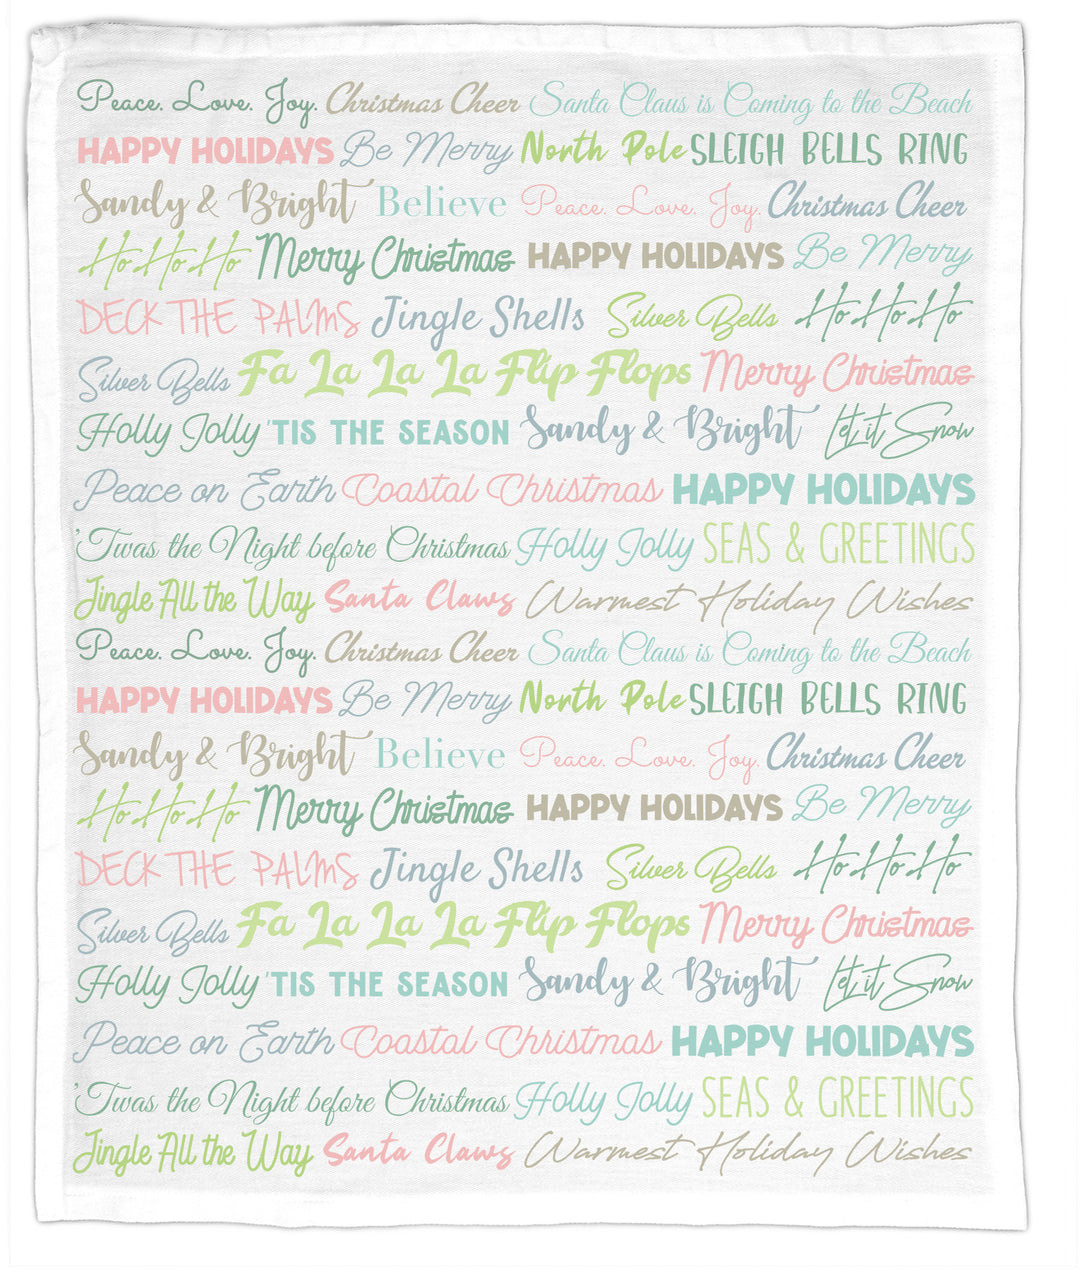 Peace. Love. Joy. Christmas Cheer Santa Claus is Coming to the Beach
HAPPY HOLIDAYS Be Merry North Pole SLEIGH BELLS RING
Sandy & Bright Believe Peace. Love. Joy. Christmas Cheer
Ho Ho Ho Merry Christmas HAPPY HOLIDAYS Be Merry
DECK THE PALMS Jingle Shells Silver Bells Ho Ho Ho
Silver Bells Fa La La La Flip Flops Merry Christmas
Holly Jolly 'TIS THE SEASON Sandy & Bright Let it Snow
Peace on Earth Coastal Christmas HAPPY HOLIDAYS
'Twas the Night before Christmas Holly Jolly SEAS & GREETINGS
Jingle All the Way Santa Claws Warmest Holiday Wishes
Peace. Love. Joy. Christmas Cheer Santa Claus is Coming to the Beach
HAPPY HOLIDAYS Be Merry North Pole SLEIGH BELLS RING
Sandy & Bright Believe Peace. Love. Joy. Christmas Cheer
Ho Ho Ho Merry Christmas HAPPY HOLIDAYS Be Merry
DECK THE PALMS Jingle Shells Silver Bells Ho Ho Ho
Silver Bells Fa La La La Flip Flops Merry Christmas
Holly Jolly 'TIS THE SEASON Sandy & Bright Let it Snow
Peace on Earth Coastal Christmas HAPPY HOLIDAYS
'Twas the Night before Christmas Holly Jolly SEAS & GREETINGS
Jingle All the Way Santa Claws Warmest Holiday Wishes